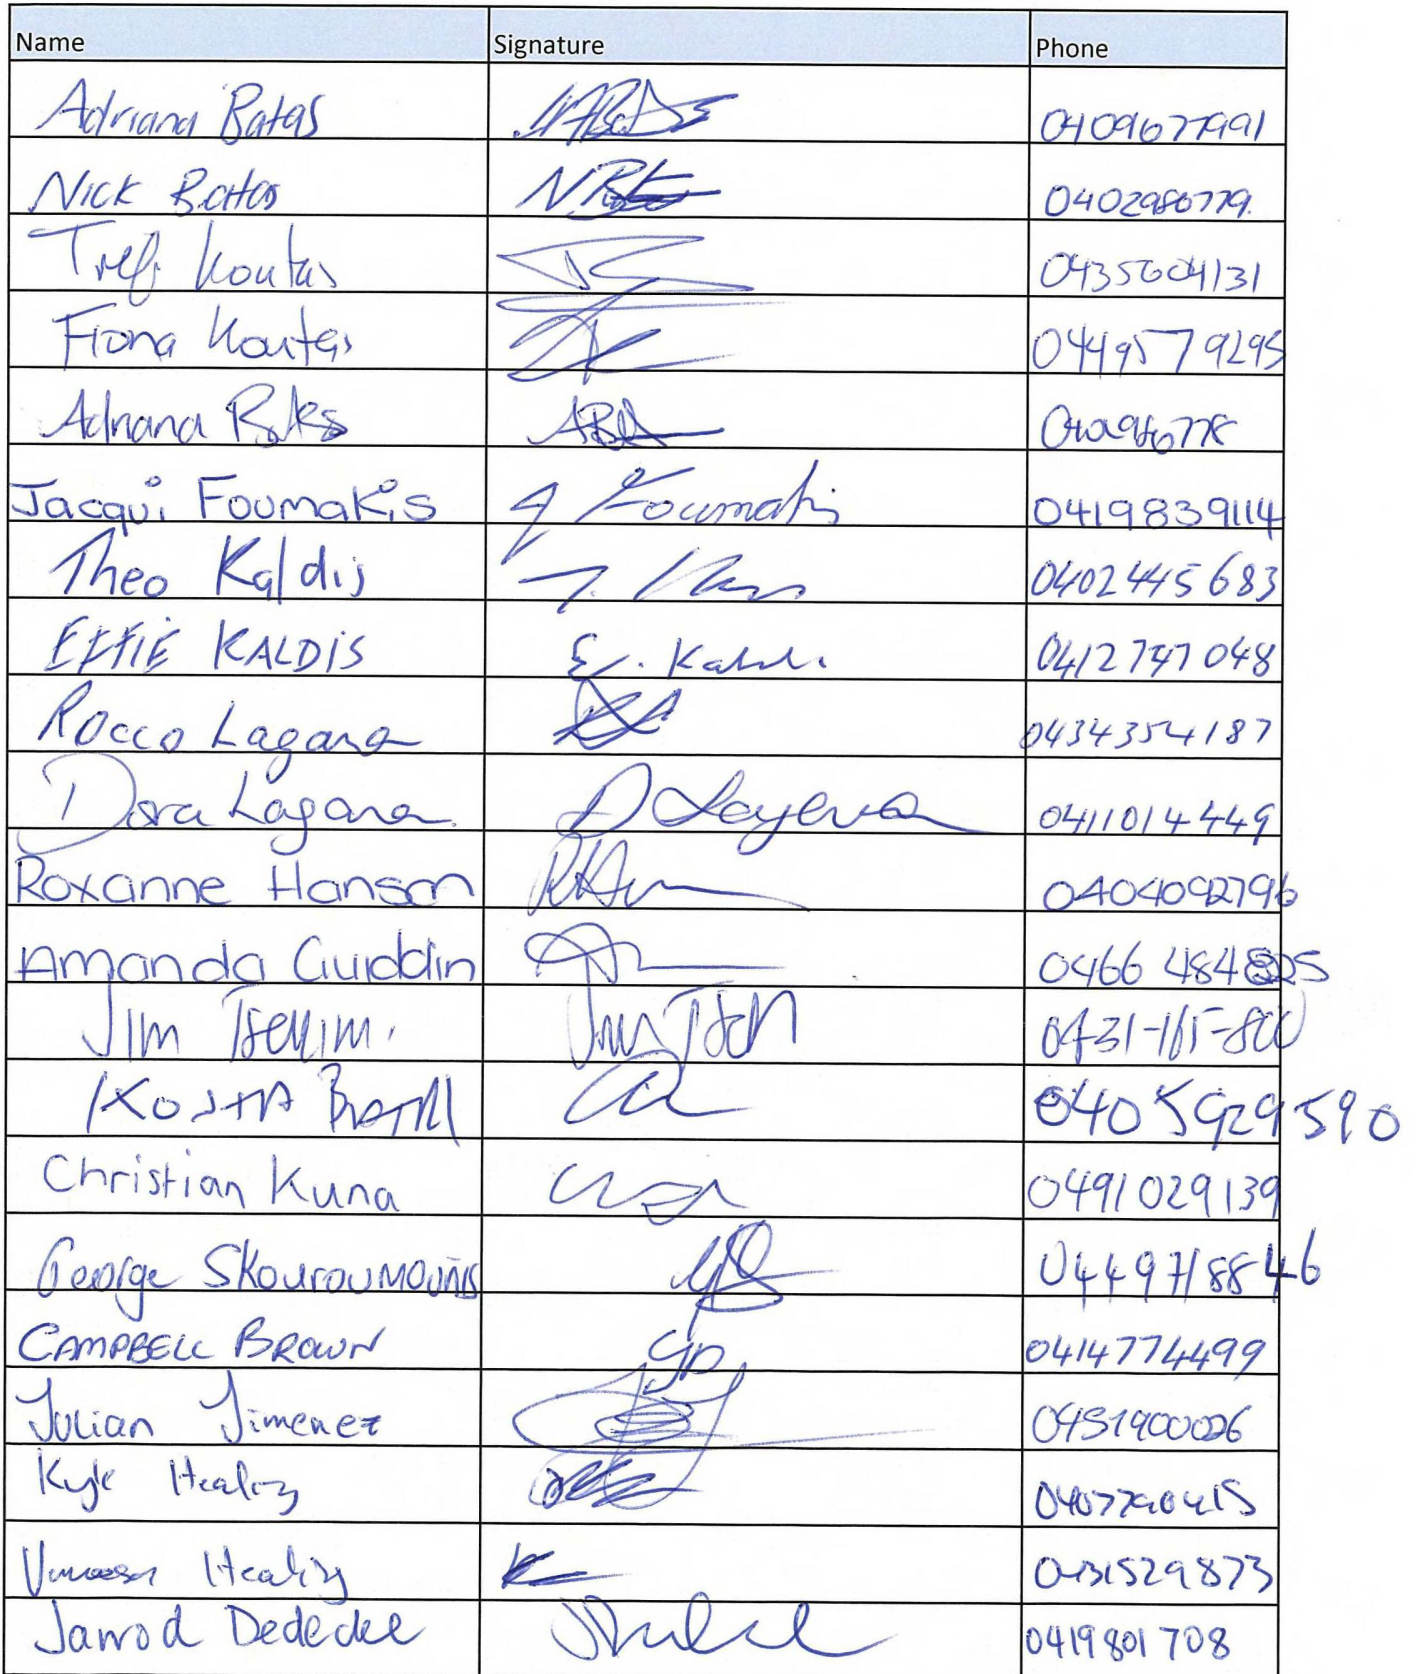 Name Signature Phone
Adriana Batas 0409677991
Nick Batas 0402980779.
Trefi Koutas 0435604131
Fiona Koutas 0449579295
Adriana
Jacqui Foumakis J Foumakis 0419839114
Theo Kaldis 0402445683
EFFIE KALDIS E. Kaldis 0412747048
Rocco Lagana 0434354187
Dora Lagana D Lagana 0411014449
Roxanne Hanson 0404092796
Amanda 0466 484825
JIM 0431-165-800
KOSTA 0405929590
Christian Kuna 0491029139
George Skouroumounis 0449718846
CAMPBELL BROWN 0414774499
Julian Jimenez 0451900026
Kyle Healing 0407790415
Healing 0431529873
Jarrod Dedecke 0419801708